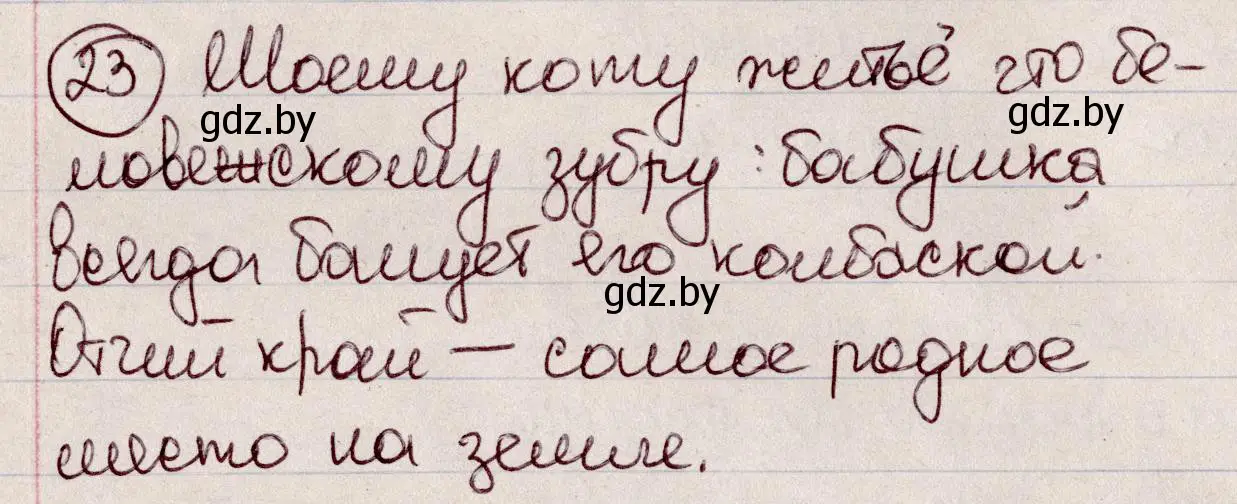 23 Моему коту житьё что бе-
gdz.by
gdz.by
ловежскому зубру: бабушка
всегда балует его колбаской.
gdz.by
Отчий край — самое родное
место на земле.